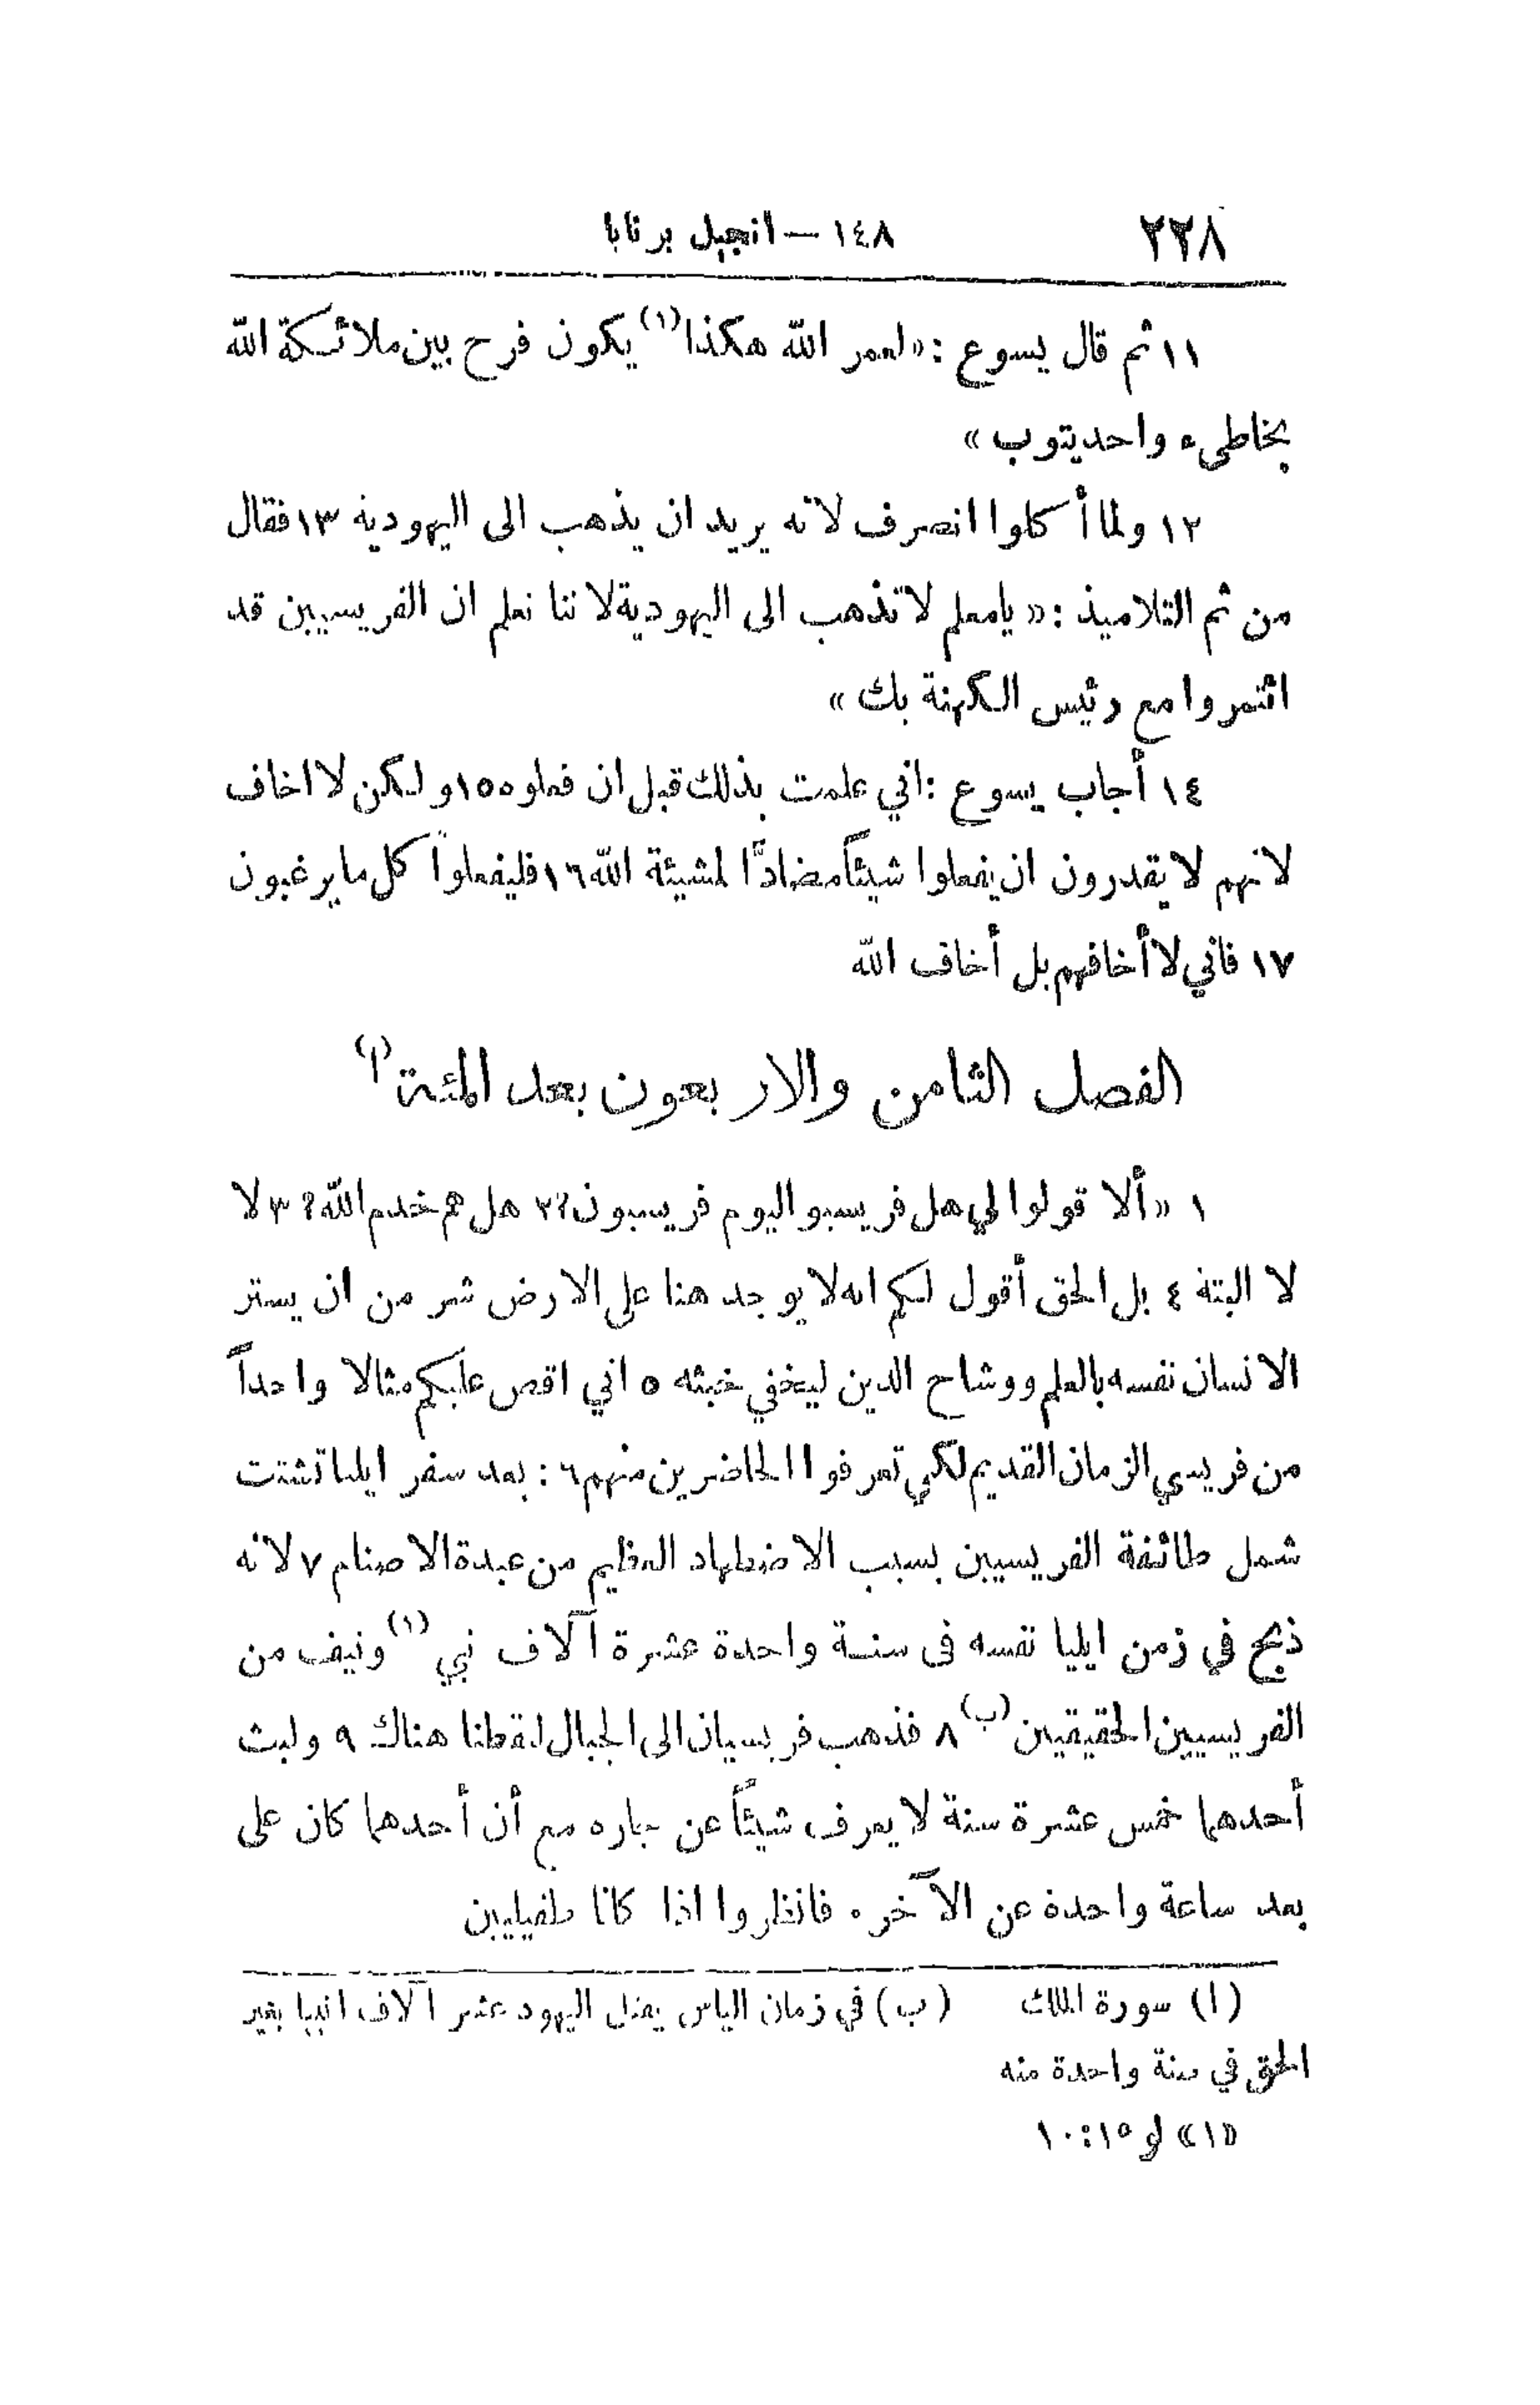 ٢٢٨ ١٤٨ — انجيل برنابا
١١ ثم قال يسوع : «لعمر الله هكذا(١) يكون فرح بين ملائكة الله
بخاطىء واحد يتوب »
١٢ ولما أكلوا انصرف لانه يريد ان يذهب الى اليهودية ١٣ فقال
من ثم التلاميذ : « يامعلم لا تذهب الى اليهودية لاننا نعلم ان الفريسيين قد
ائتمروا مع رئيس الكهنة بك »
١٤ أجاب يسوع : اني علمت بذلك قبل ان فعلوه ١٥ ولكن لا اخاف
لانهم لا يقدرون ان يفعلوا شيئاً مضادًّا لمشيئة الله ١٦ فليفعلوا كل ما يرغبون
١٧ فاني لا أخافهم بل أخاف الله
الفصل الثامن والاربعون بعد المئة(ا)
١ «ألا قولوا لي هل فريسيو اليوم فريسيون؟ ٢ هل هم خدم الله؟ ٣ لا
لا البتة ٤ بل الحق أقول لكم انه لا يوجد هنا على الارض شر من ان يستر
الانسان نفسه بالعلم ووشاح الدين ليخفي خبثه ٥ اني اقص عليكم مثالا واحداً
من فريسي الزمان القديم لكي تعرفوا الحاضرين منهم ٦ : بعد سفر ايليا تشتت
شمل طائفة الفريسيين بسبب الاضطهاد العظيم من عبدة الاصنام ٧ لانه
ذبح في زمن ايليا نفسه فى سنة واحدة عشرة آلاف نبي(١) ونيف من
الفريسيين الحقيقيين(ب) ٨ فذهب فريسيان الى الجبال ليقطنا هناك ٩ ولبث
أحدهما خمس عشرة سنة لا يعرف شيئاً عن جاره مع أن أحدهما كان على
بعد ساعة واحدة عن الآخر ٠ فانظروا اذا كانا طفيليين
(ا) سورة الملك (ب) في زمان الياس يقتل اليهود عشر آلاف انبيا بغير
الحق في سنة واحدة منه
«١» لو ١٥:١٠